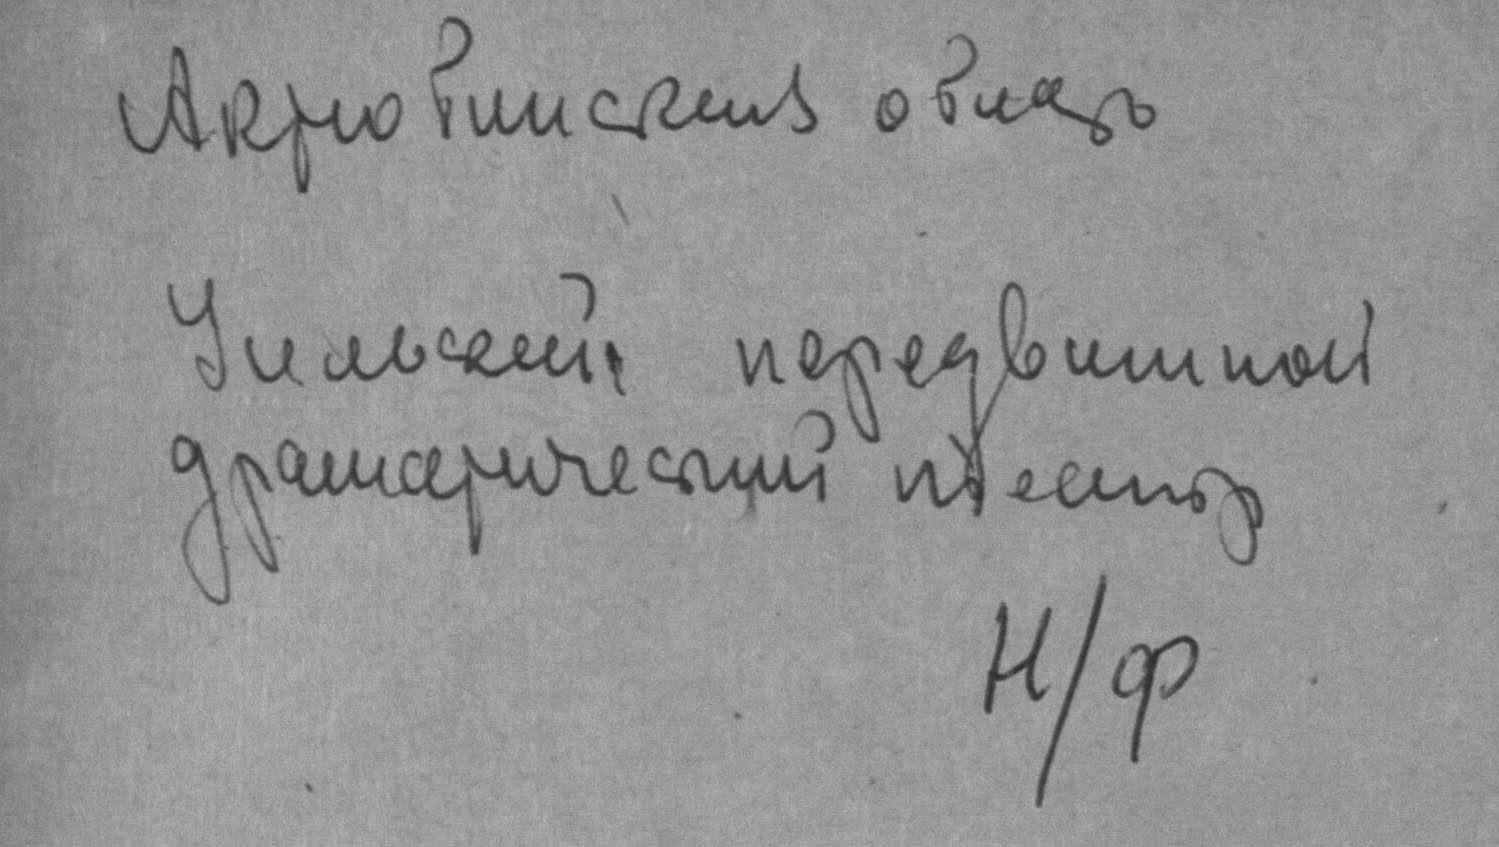 Актюбинская область
Уильский передвижной
драматический театр
Н/ф